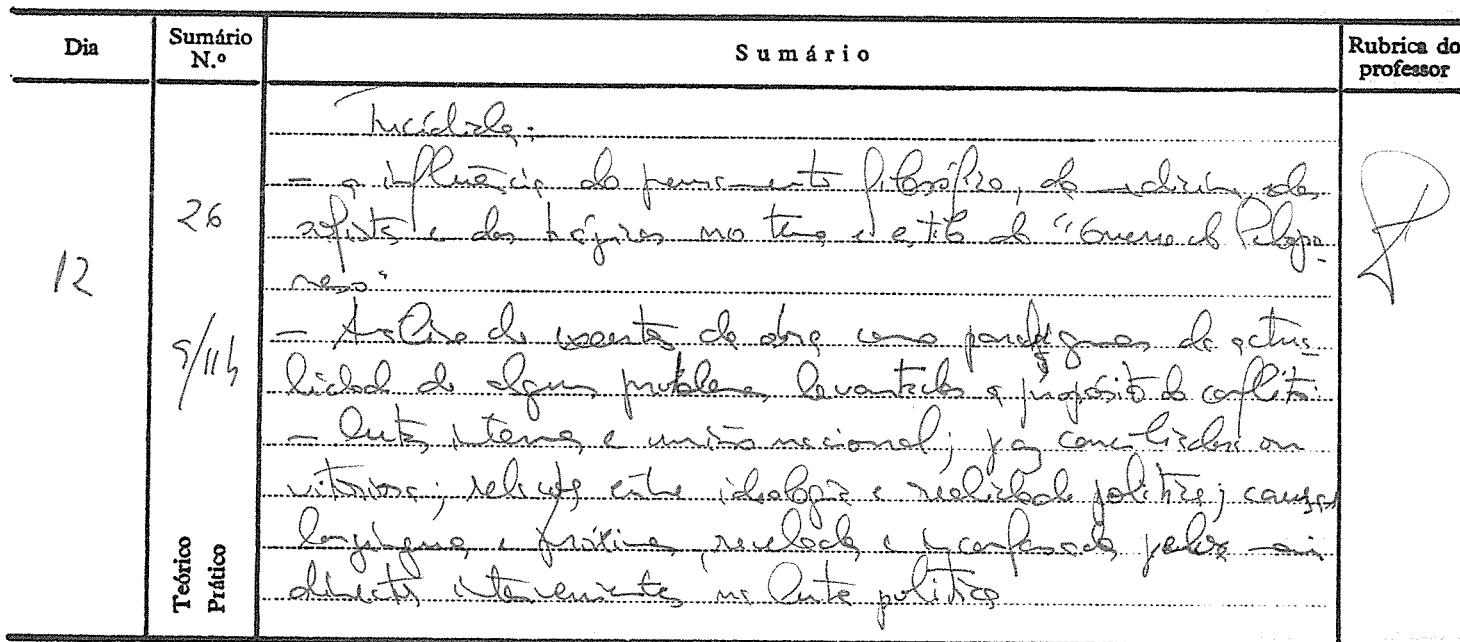 Dia
Sumário N.º
Sumário
Rubrica do professor
12
26
9/11h
Teórico
Prático
Tucídides:
- a influência do pensamento filosófico, da medicina, dos
sofistas e dos trágicos no tema e estilo da "Guerra do Pelopo-
neso"
- Análise de excertos da obra como paradigmas da actua-
lidade de alguns problemas levantados a propósito do conflito:
- lutas internas e união nacional; paz conciliadora ou
vitoriosa; relações entre ideologia e realidade política; causas
longínquas e próximas, reveladas e inconfessadas pelos mais
directos intervenientes na luta política